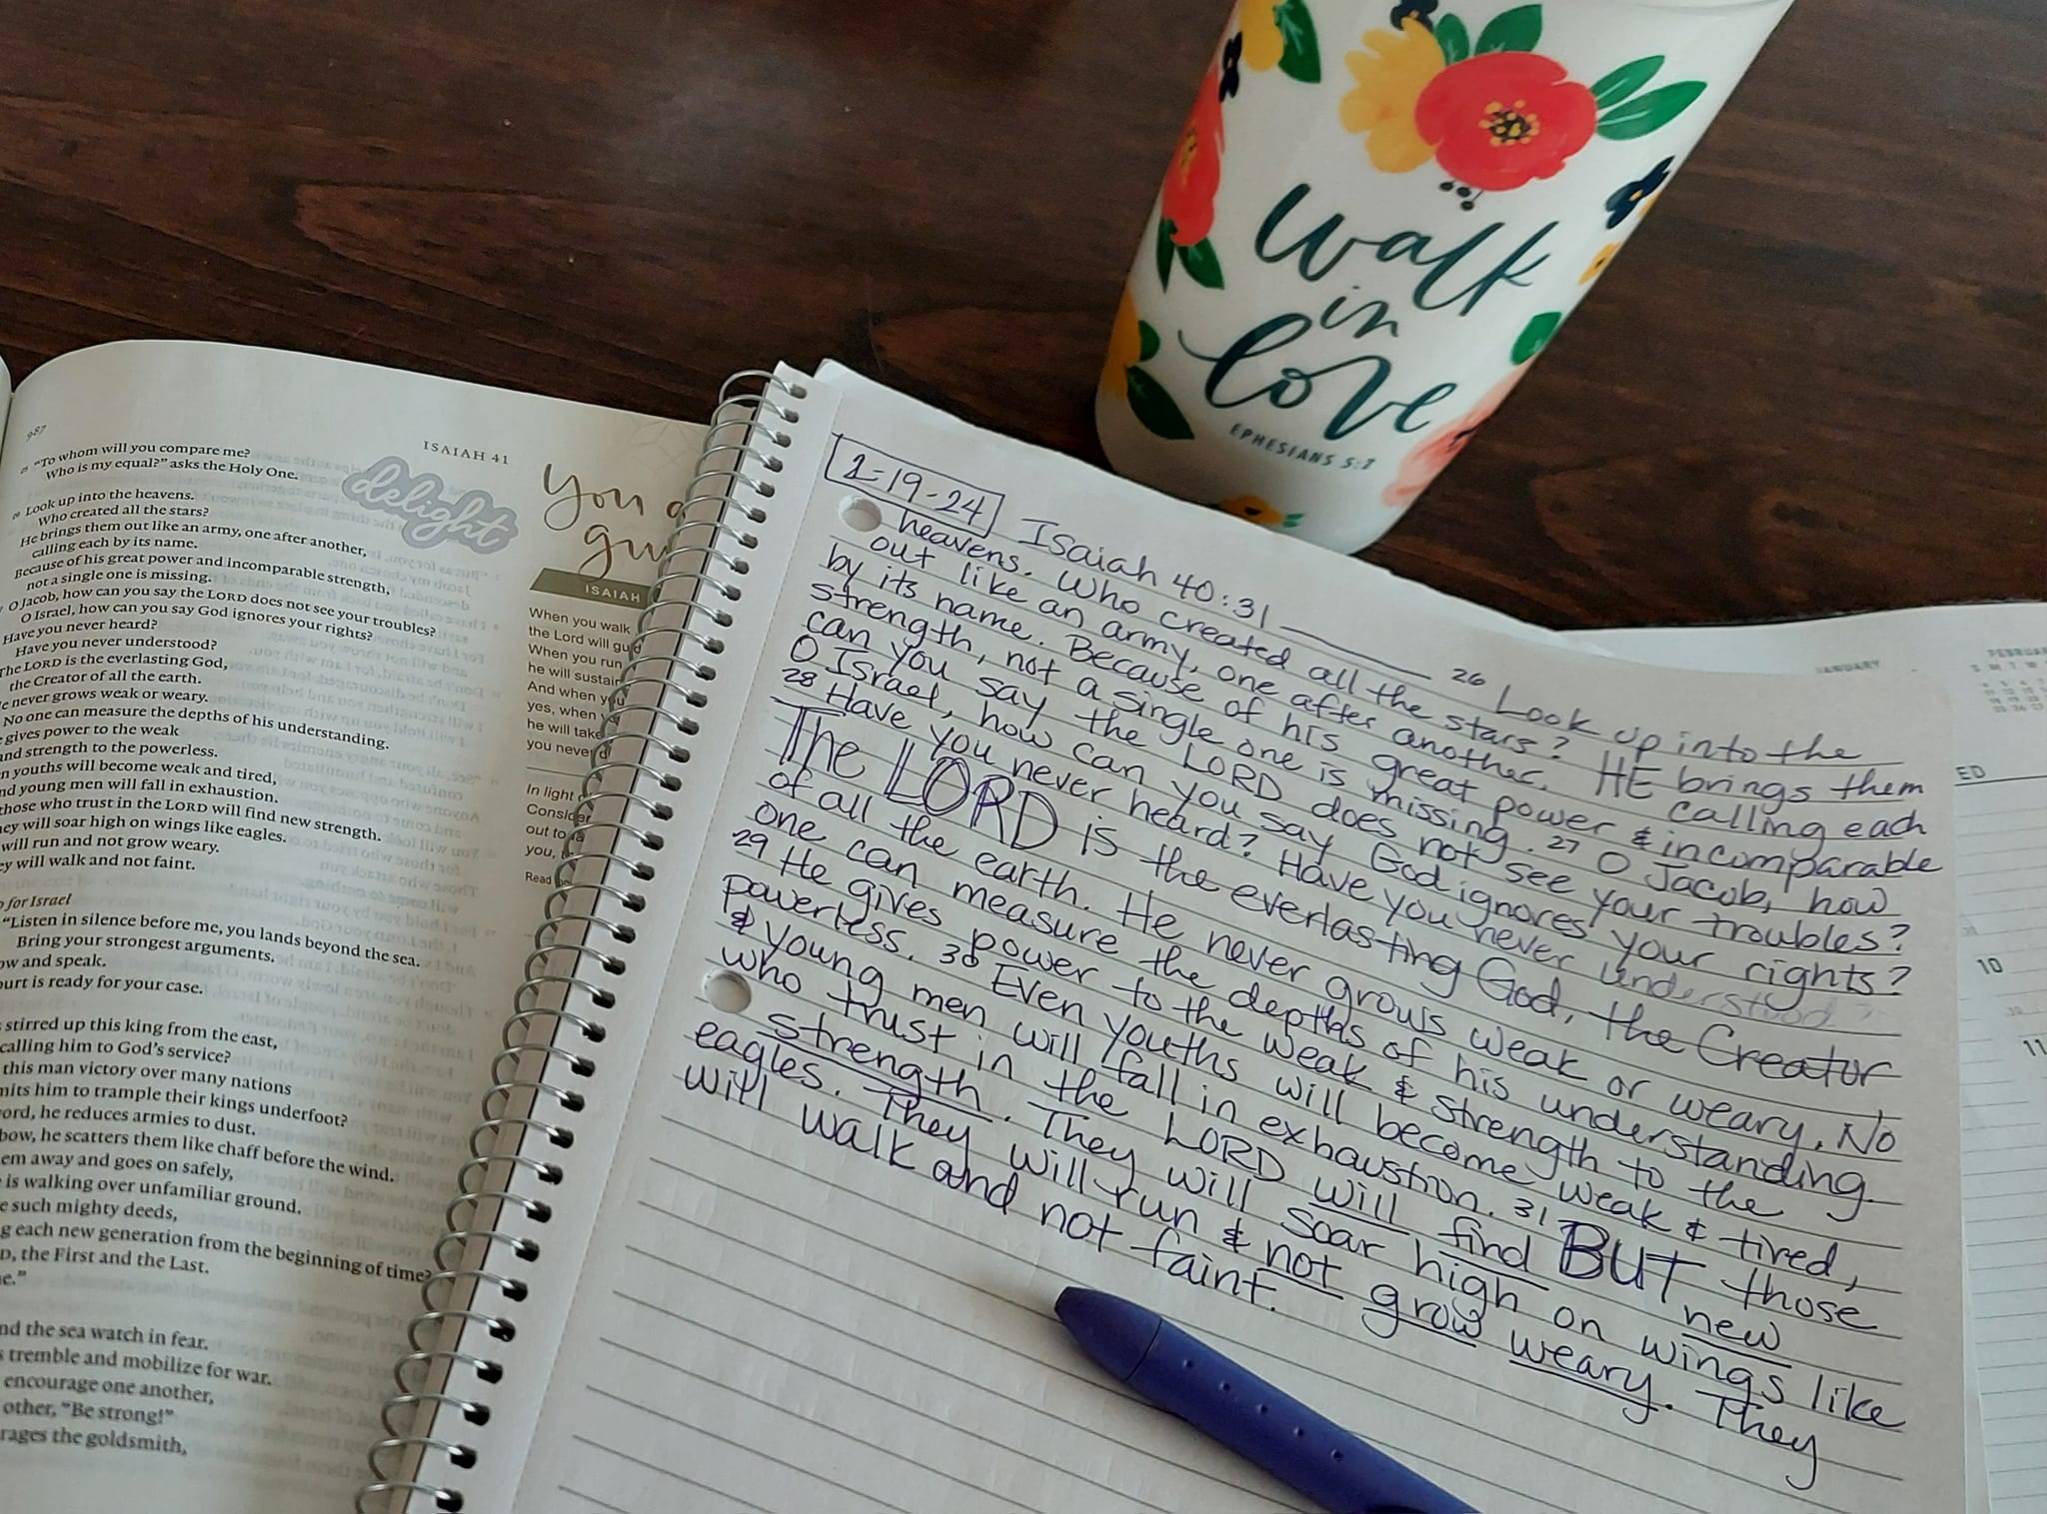 walk
in
love
EPHESIANS 5:2
987
ISAIAH 41
"To whom will you compare me?
Who is my equal?" asks the Holy One.
Look up into the heavens.
Who created all the stars?
He brings them out like an army, one after another,
calling each by its name.
Because of his great power and incomparable strength,
not a single one is missing.
O Jacob, how can you say the LORD does not see your troubles?
O Israel, how can you say God ignores your rights?
Have you never heard?
Have you never understood?
The LORD is the everlasting God,
the Creator of all the earth.
never grows weak or weary.
No one can measure the depths of his understanding.
gives power to the weak
and strength to the powerless.
youths will become weak and tired,
and young men will fall in exhaustion.
those who trust in the LORD will find new strength.
They will soar high on wings like eagles.
will run and not grow weary.
will walk and not faint.
for Israel
"Listen in silence before me, you lands beyond the sea.
Bring your strongest arguments.
and speak.
court is ready for your case.
stirred up this king from the east,
calling him to God's service?
this man victory over many nations
him to trample their kings underfoot?
he reduces armies to dust.
bow, he scatters them like chaff before the wind.
away and goes on safely,
is walking over unfamiliar ground.
such mighty deeds,
each new generation from the beginning of time?
the First and the Last.
and the sea watch in fear.
tremble and mobilize for war.
encourage one another,
other, "Be strong!"
the goldsmith,
delight
you
ISAIAH
When you walk
the Lord will
When you run
he will sustain
And when you
yes, when
he will take
you never
In light
Consider
out to
you,
Read
2-19-24 Isaiah 40:31 26 Look up into the
heavens. Who created all the stars? HE brings them
out like an army, one after another, calling each
by its name. Because of his great power & incomparable
strength, not a single one is missing. 27 O Jacob, how
can you say the LORD does not see your troubles?
O Israel, how can you say God ignores your rights?
28 Have you never heard? Have you never understood?
The LORD is the everlasting God, the Creator
of all the earth. He never grows weak or weary. No
one can measure the depths of his understanding.
29 He gives power to the weak & strength to the
powerless. 30 Even youths will become weak & tired,
& young men will fall in exhaustion. 31 BUT those
who trust in the LORD will find new
strength. They will soar high on wings like
eagles. They will run & not grow weary. They
will walk and not faint.
JANUARY
ED
10
11